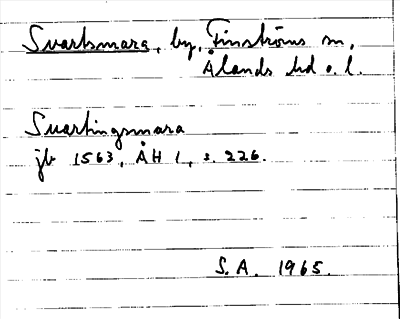 Svartsmara, by, Finströms sn,
Ålands hd o. l.
Svartingsmara
jb 1563, ÅH 1, s. 226.
S.A. 1965.